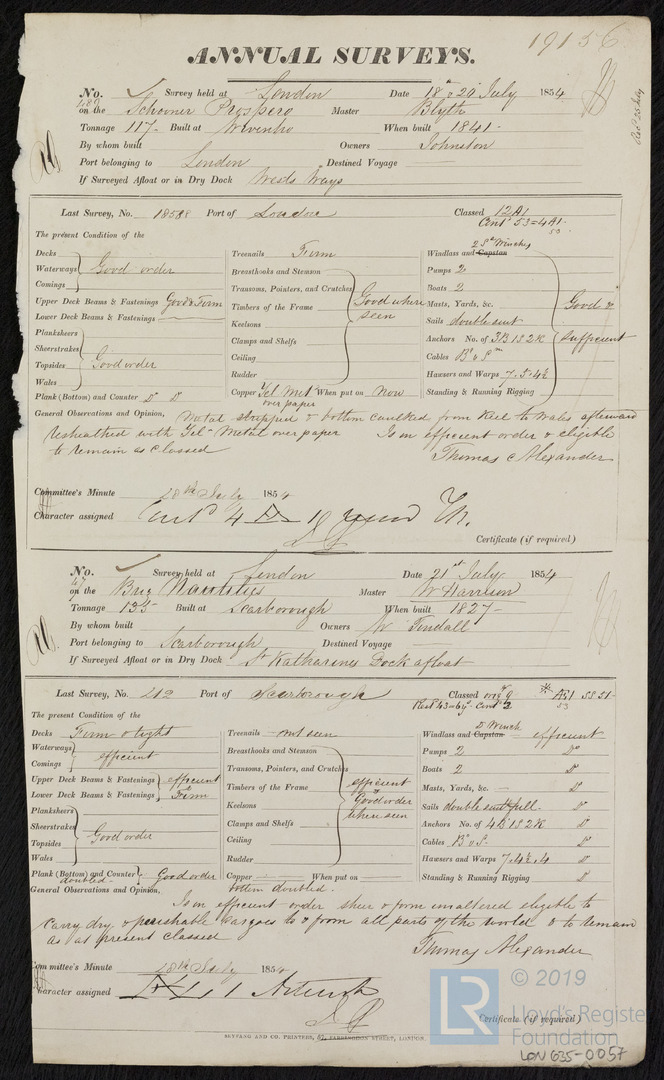 19156
ANNUAL SURVEYS.
Recd 25 July
No. 482 Survey held at London Date 18 & 20 July 1854
on the Schooner Prospero Master Blyth
Tonnage 117 Built at Wivenho When built 1841
By whom built Owners Johnston
Port belonging to London Destined Voyage
If Surveyed Afloat or in Dry Dock Wests Ways
Last Survey, No. 18588 Port of London Classed 12A1
Contd 53=4A1.
53
The present Condition of the
Decks
Waterways Good order
Comings
Upper Deck Beams & Fastenings Good & Firm
Lower Deck Beams & Fastenings
Planksheers
Sheerstrakes
Topsides Good order
Wales
Plank (Bottom) and Counter Do Do
Treenails Firm
Breasthooks and Stemson
Transoms, Pointers, and Crutches
Timbers of the Frame Good where seen
Keelsons
Clamps and Shelfs
Ceiling
Rudder
Copper Yel Met over paper When put on Now
2 Pt Winches
Windlass and Capstan
Pumps 2
Boats 2
Masts, Yards, &c. Good &
Sails double suit
Anchors No. of 3B 1S 2K sufficient
Cables
Hawsers and Warps 7. 5. 4½
Standing & Running Rigging
General Observations and Opinion, Metal stripped & bottom caulked from Keel to Wales afterward
resheathed with Yel- Metal over paper Is in efficient order & eligible
to remain as classed Thomas Alexander
Committee's Minute 28th July 1854
Character assigned Contd 4
Certificate (if required)
No. 47 Survey held at London Date 21st July 1854
on the Brig Nautilus Master W Harrison
Tonnage 135 Built at Scarborough When built 1827
By whom built Owners W Tindall
Port belonging to Scarborough Destined Voyage
If Surveyed Afloat or in Dry Dock St Katharines Dock afloat
Last Survey, No. 212 Port of Scarborough Classed orig 9 * Æ1 SS 51-
53
Rest 43=6ys. Contd 2
The present Condition of the
Decks Firm & tight
Waterways
Comings efficient
Upper Deck Beams & Fastenings efficient
Lower Deck Beams & Fastenings & Firm
Planksheers
Sheerstrakes
Topsides Good order
Wales
Plank (Bottom) and Counter Good order
doubled
Treenails not seen
Breasthooks and Stemson
Transoms, Pointers, and Crutches
Timbers of the Frame efficient &
Keelsons Good order
Clamps and Shelfs where seen
Ceiling
Rudder
Copper When put on
bottom doubled.
Winch
Windlass and Capstan efficient
Pumps 2 Do
Boats 2 Do
Masts, Yards, &c. Do
Sails double suit full Do
Anchors No. of 4B 1S 2K Do
Cables Do
Hawsers and Warps 7. 4½. 4 Do
Standing & Running Rigging Do
General Observations and Opinion,
Is in efficient order sheer & form unaltered eligible to
carry dry & perishable cargoes to & from all parts of the world & to remain
as at present classed
Thomas Alexander
Committee's Minute 28th July 1854
Character assigned
Certificate (if required)
SEYFANG AND CO. PRINTERS, 57, FARRINGDON STREET, LONDON.
LR © 2019
Lloyd's Register
Foundation
LON 635-0057